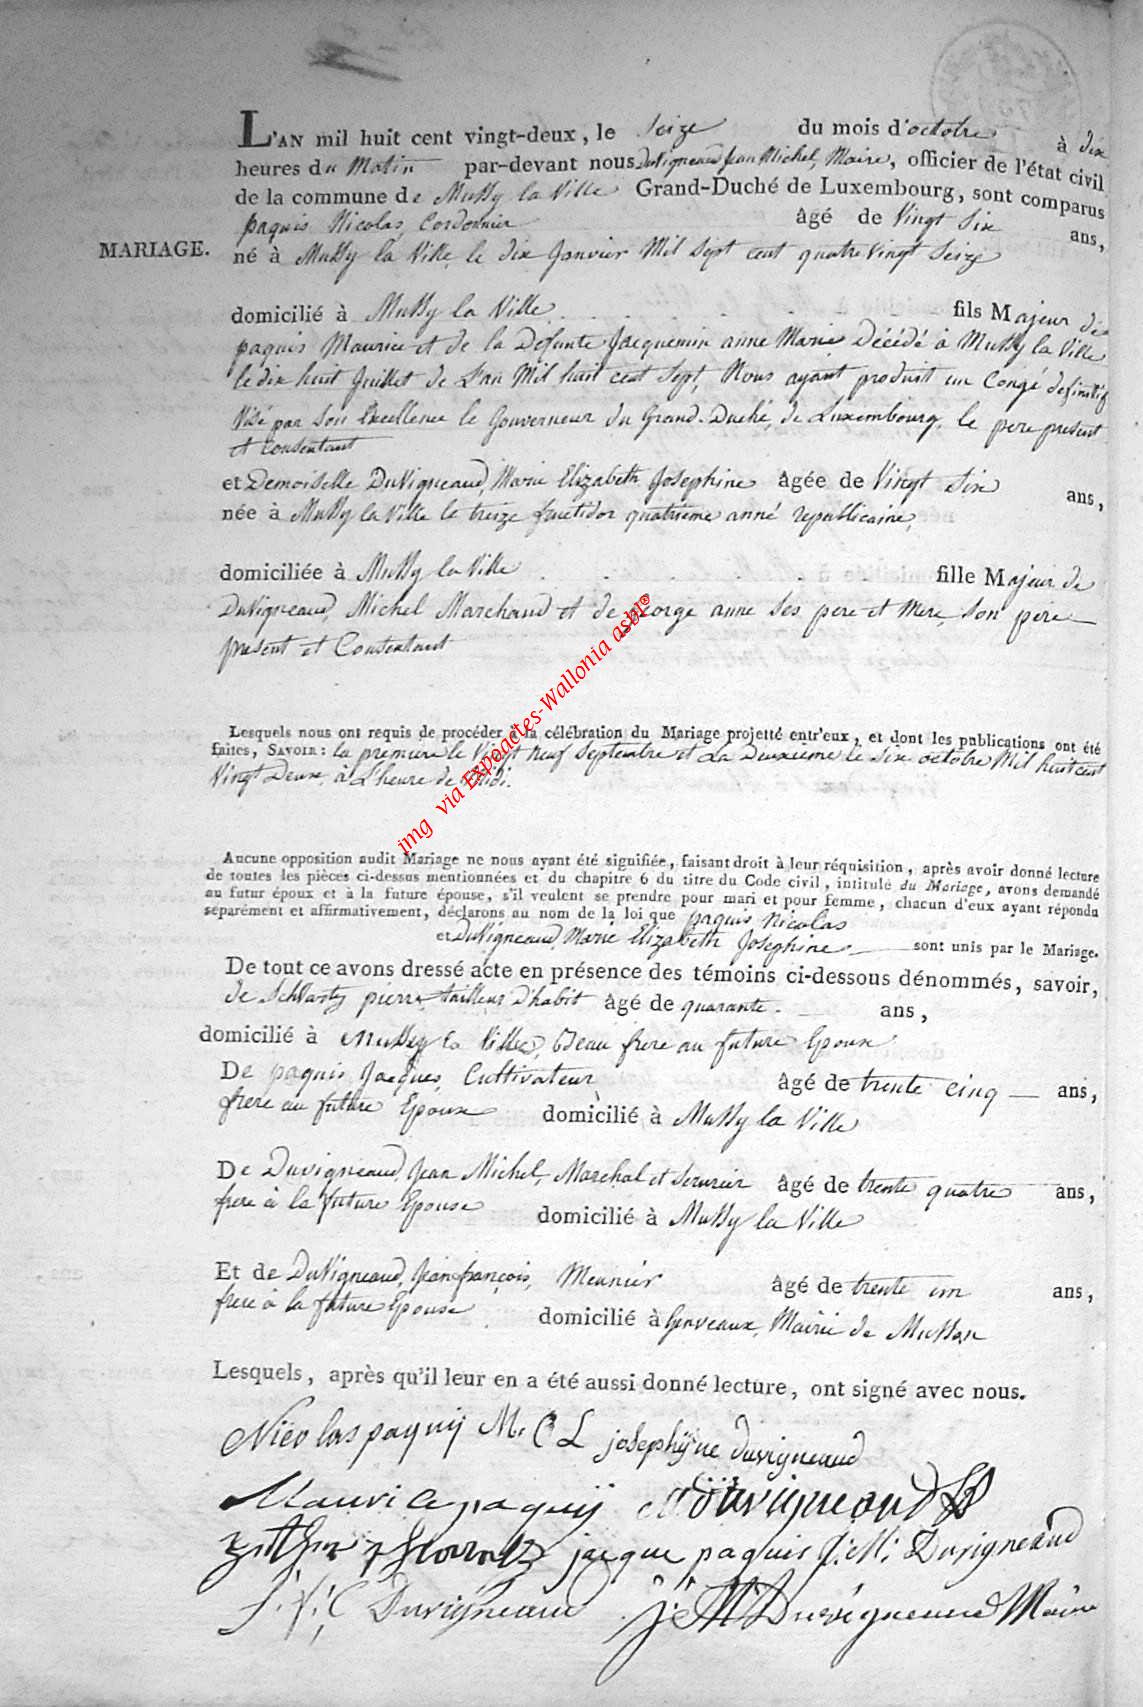 L'AN mil huit cent vingt-deux, le Seize du mois d'octobre à dix
heures du Matin par-devant nous DuVigneaud Jean Michel, Maire, officier de l'état civil
de la commune de Mussy la Ville Grand-Duché de Luxembourg, sont comparus
paquis Nicolas, Cordonnier âgé de Vingt Six ans,
MARIAGE. né à Mussy la Ville le dix Janvier Mil Sept cent quatre Vingt Seize
domicilié à Mussy la Ville fils Majeur de
paquis Maurice et de la Defunte Jacquemin anne Marie Décédé à Mussy la Ville
le dix huit Juillet de L'an Mil huit cent Sept, Nous ayant produit un Congé definitif
Visé par Son Excellence le Gouverneur du Grand-Duché, de Luxembourg, le pere present
et Consentant
et Demoiselle DuVigneaud, Marie Elizabeth Josephine âgée de Vingt Six ans,
née à Mussy la Ville le treize fructidor quatrieme anné republicaine,
domiciliée à Mussy la Ville fille Majeur de
DuVigneaud, Michel Marchand et de George anne Ses pere et Mere, Son pere
present et Consentant
Lesquels nous ont requis de procéder à la célébration du Mariage projetté entr'eux, et dont les publications ont été
faites, SAVOIR: la premiere le Vingt neuf Septembre et La Deuxieme le Six octobre Mil huit cent
Vingt Deux, à L'heure de Midi.
Aucune opposition audit Mariage ne nous ayant été signifiée, faisant droit à leur réquisition, après avoir donné lecture
de toutes les pièces ci-dessus mentionnées et du chapitre 6 du titre du Code civil, intitulé du Mariage, avons demandé
au futur époux et à la future épouse, s'il veulent se prendre pour mari et pour femme, chacun d'eux ayant répondu
séparément et affirmativement, déclarons au nom de la loi que paquis Nicolas
et DuVigneaud, Marie Elizabeth Josephine sont unis par le Mariage.
De tout ce avons dressé acte en présence des témoins ci-dessous dénommés, savoir,
de Schwartz pierre tailleur d'habit âgé de quarante ans,
domicilié à Mussy la Ville, Beau frere au future Epoux
De paquis Jacques, Cultivateur âgé de trente cinq ans,
frere au future Epoux domicilié à Mussy la Ville
De Duvigneaud, Jean Michel, Marchal et Serurier âgé de trente quatre ans,
frere à la future Epouse domicilié à Mussy la Ville
Et de DuVigneaud, Jean françois, Meunier âgé de trente un ans,
frere à la future Epouse domicilié à Gerveaux, Mairie de Musson
Lesquels, après qu'il leur en a été aussi donné lecture, ont signé avec nous.
Nicolas paquij M. E L josephijne duvigneaud
Maurice paquij M Duvigneaud
jacque paquis J: M: Duvigneaud
J: f: Duvigneaud J M Duvigneaud Maire
img via Expoactes-Wallonia asbl®